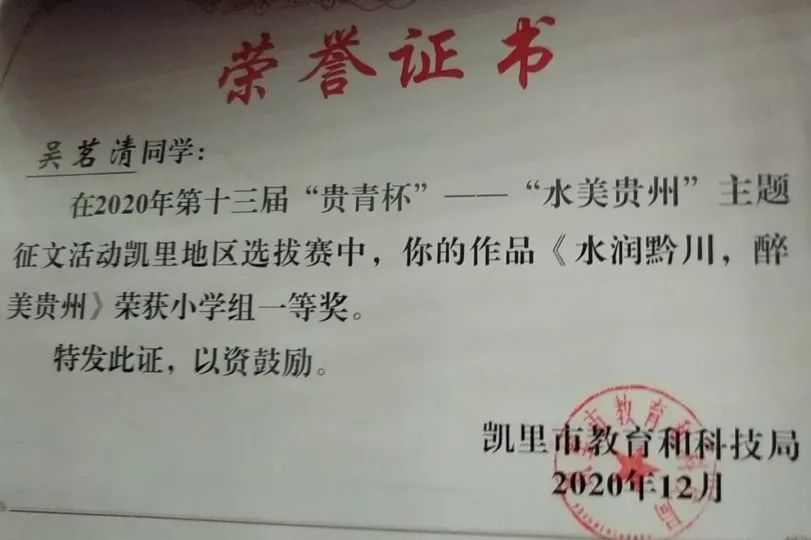 荣誉证书
吴茗清同学：
在2020年第十三届“贵青杯”——“水美贵州”主题
征文活动凯里地区选拔赛中，你的作品《水润黔川，醉
美贵州》荣获小学组一等奖。
特发此证，以资鼓励。
凯里市教育和科技局
2020年12月